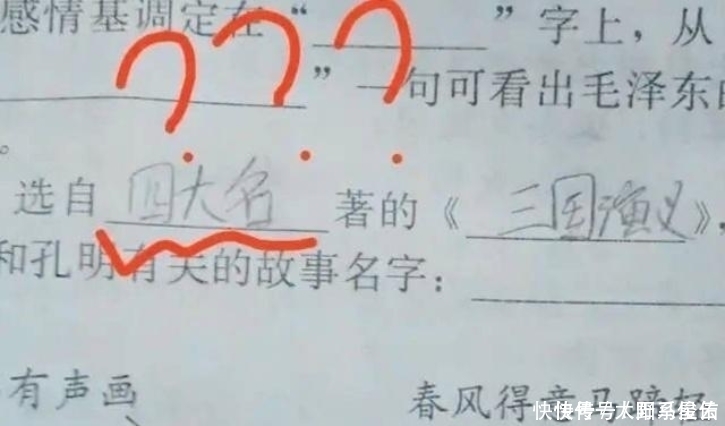 感情基调定在“______”字上，从
______”一句可看出毛泽东
。
选自 四大名 著的《三国演义》，
和孔明有关的故事名字：______
有声画
春风得意马蹄